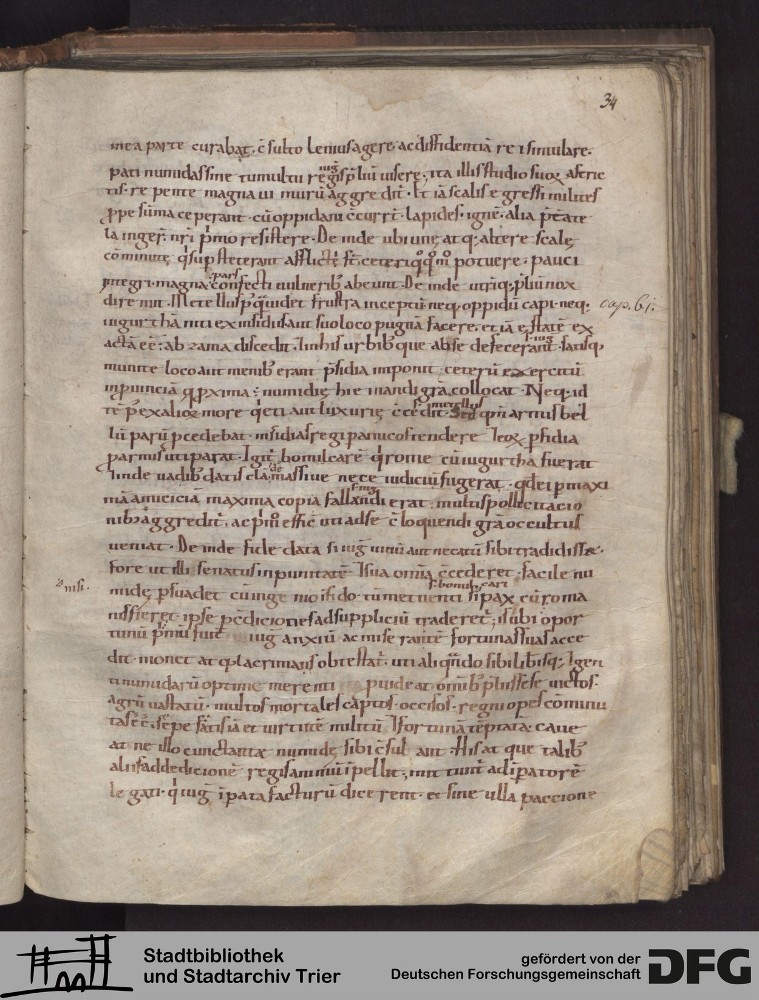 34
in ea parte curabat. c̄sulto lenius agere. ac diffidentiā rei simulare.
pati numidas sine tumultu regis p̄liū uisere. ita illis studio suoꝝ astric
tis. repente magna ui murū aggredit̄. Et iā scalis egressi milites
ꝓpe sūma ceperant. cū oppidani c̄currt̄. lapides. ignē. alia p̄t̄ea te
la inger̄. nr̄i p̄mo resistere. Deinde ubi une atq; altere scalę
comminutę. q̇ sup̄steterant afflicti st̄. ceteri q̊q̊ m̊ potuere. pauci
integri. magna pars confecti uulnerib; abeunt. Deinde utriq; p̄liū nox
diremit. Metellus pq̄ uidet frustra inceptū neq; oppidū capi. neq;
cap. 61.
iugurthā nisi ex insidiis aut suo loco pugnā facere. et iā ęstatē ex
actā eē. ab zama discedit. In his urbib; que ab se defecerant. satisq;
munite loco aut menib; erant p̄sidia imponit. ceterū exercitū
in ꝓuinciā q̨ ꝓxima. numidię hiemandi grā collocat. Neq; id
tēp̄ ex alioꝝ more q̇eti aut luxurię c̄cedit. Sed qm̄ armis bel
s. metellus
lū parū ꝓcedebat. insidias regi p amicos tendere. &amp; eoꝝ ꝑfidia
p armis uti parat. Igit̄ bomulcarē q̇ rome cū iugurtha fuerat
&amp; inde uadib; datis clā de massiue nece iudiciū fugerat. qd ei p maxi
mā amiciciā maxima copia fallandi erat. multis pollicitacio
nib; aggredit̄. ac p̄m̊ effic̄ uti ad se c̄loquendi grā occultus
ueniat. Deinde fide data si iug̅ uiuū aut necatū sibi tradidisset.
fore ut illi senatus inpunitatē &amp; sua om̄ia c̄cederet. facile nu
nisi.
midę p̄suadet cū ingenio ifido. tū metuenti si pax cū roma
s. bomulcari
nis fieret. ipse p c̄diciones ad suppliciū traderet̄. is ubi opor
tunū p̄mū fuit iug̅ anxiū ac miserantē fortunas suas acce
dit. monet atq; lacrimans obtestat̄. uti aliqn̄do sibi libisq; &amp; gen
ti numidarū optime merenti ꝓuideat. om̄ib; p̄liis sese uictos.
agrū uastatū. multos mortales captos. occisos. regni opes cōminu
tas eē. sępe satis iā et uirtutē militū &amp; fortunā tēptatā. caue
at ne illo cunctante numidę sibi c̄sulant. His atque talib;
aliis ad dedicionē regis animū īpellit. mittunt̄ ad īperatorē
legati. q̇ iug̅ īperata facturū dicerent. et sine ulla paccione
Stadtbibliothek
und Stadtarchiv Trier
gefördert von der
Deutschen Forschungsgemeinschaft
DFG